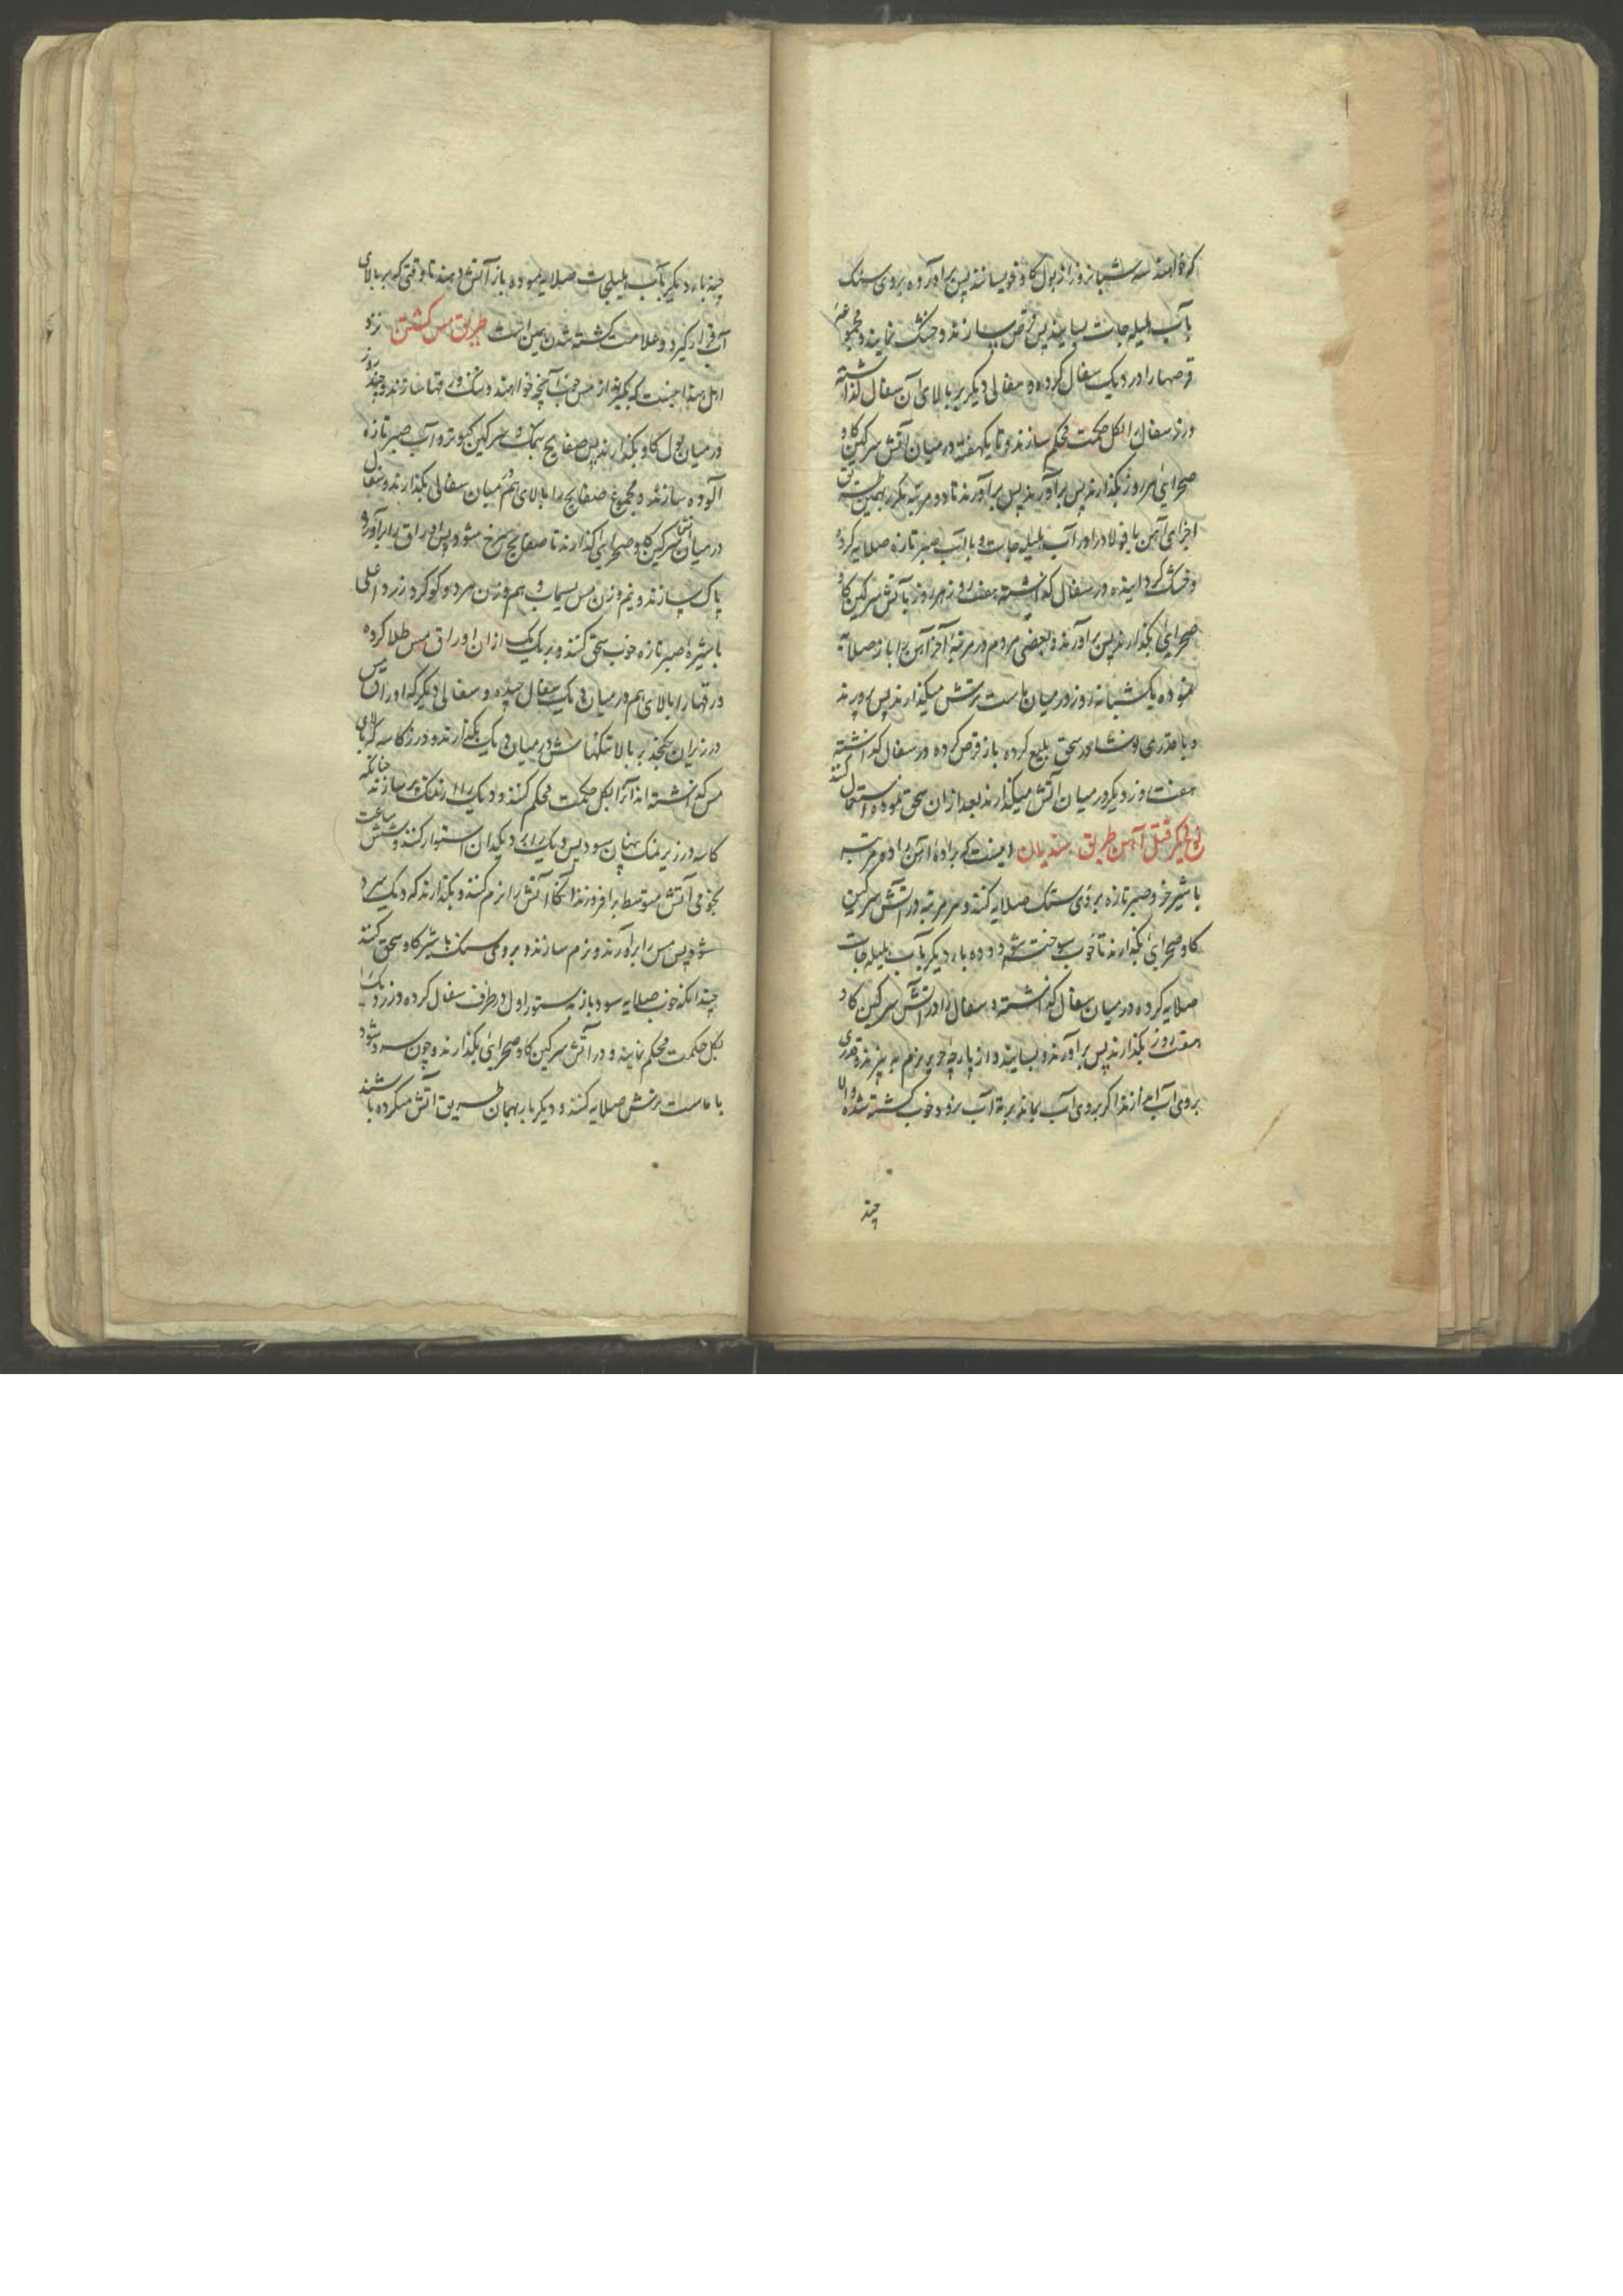 که خواهند سه شبانروز در بول گاو خویسانند پس برآورده بروی سنک
باب هلیله جات بسایند پس قرص سازند و خشک نمایند و مجموعه
قرصها را در دیک سفال کرده و سفالی دیکر بر بالای آن سفال گذاشته
درز سفال را بکل حکمت محکم سازند و تا یکهفته در میان آتش سرکین کاو
صحرایی هر روز بگذارند پس برآورند پس برآورند تا دو مرتبه دیکر بهمین طریق
اجزای آهن یا فولاد را در آب هلیله جات و با آب صبر تازه صلایه کرده
و خشک کردانیده در سفال گذاشته هفت روز هر روز بآتش سرکین کاو
صحرایی بگذارند پس برآورند و بعضی مردم در مرتبه آخر آهن را باز صلایه
نموده یک شبانه روز در میان ماست ترش میگذارند پس برآورند
و با قدری نوشادر سحق بلیغ کرده باز قرص کرده در سفال گذاشته
هفت روز دیکر در میان آتش میگذارند بعد از آن سحق نموده استعمال کنند
نوع دیکر قتل آهن طریق هندیان اینست که براده آهن را ده مرتبه
با شیر خر و صبر تازه بروی سنک صلایه کنند و هر مرتبه در آتش سرکین
کاو صحرایی بگذارند تا خوب سوخته شود و ده بار دیکر باب هلیله جات
صلایه کرده در میان سفال گذاشته و سفال را در آتش سرکین کاو
هفت روز بگذارند پس برآورند و بسایند و از پارچه حریر نرم به پیزند و قدری
بروی آب اندازند اکر بروی آب بماند و به ته آب نرود خوب کشته شده و الا
چند
چند بار دیکر بآب هلیلجات صلایه نموده باز آتش دهند تا وقتی که بر بالای
آب قرار کیرد و علامت کشته شدن همین است طریق مس کشتن نزد
اهل هند اینست که بکیرند از مس خوب آنچه خواهند و تنک ورقها سازند و چند روز
در میان بول کاو بگذارند پس صفایح بنمک و سرکین کبوتر و آب صبر تازه
آلوده سازند و مجموع صفایح را بالای هم در میان سفالی بگذارند و سفال
در میان آتش سرکین کاو صحرایی گذارند تا صفایح سرخ شود پس اوراق را برآورده
پاک سازند و نیم وزن مس سیماب و هم وزن هر دو کوکرد زرد اعلی
با شیره صبر تازه خوب سحق کنند و بر یک یک از ان اوراق مس طلا کرده
ورقها را بالای هم در میان دیک سفال چیده و سفالی دیکر که اوراق مس
در زیر آن بکنجد بر بالا تنکنهاش در میان دیک بگذارند و درز کاسه که بالای
مس گذاشته اند آنرا بکل حکمت محکم کنند و دیک را از نمک پر سازند چنانکه
کاسه در زیر نمک پنهان شود پس دیک را بر دیکدان استوار کنند و شش ساعت
نجومی آتش متوسط برافروزند آنکاه آتش را نرم کنند و بگذارند که دیک سرد
شود پس مس را برآورند و نرم سازند و بروی سنک با شیر کاو سحق کنند
چندانکه خوب صلایه شود باز بدستور اول در ظرف سفال کرده و درز دیک را
بکل حکمت محکم نمایند و در آتش سرکین کاو صحرایی بگذارند و چون سرد شود
با ماست ترش صلایه کنند و دیکر بار بهمان طریق آتش میکرده باشند